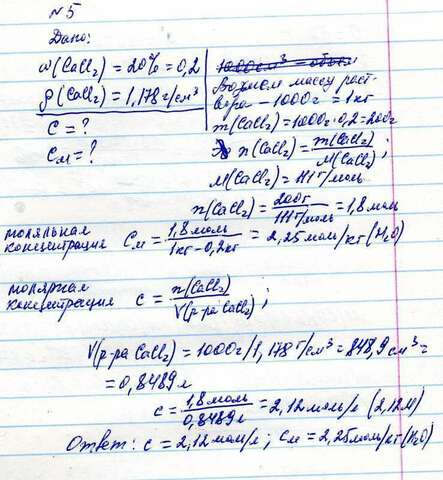 №5
Дано:
ω(CaCl₂) = 20% = 0,2
ρ(CaCl₂) = 1,178 г/см³
c = ?
Cм = ?
1000 см³ = объем
Возьмем массу раст-
вора - 1000г = 1кг
m(CaCl₂) = 1000г·0,2 = 200г
n(CaCl₂) = m(CaCl₂)/M(CaCl₂);
M(CaCl₂) = 111 г/моль
n(CaCl₂) = 200г/111г/моль = 1,8 моль
моляльная
концентрация Cм = 1,8 моль/1кг - 0,2кг = 2,25 моль/кг (H₂O)
молярная
концентрация c = n(CaCl₂)/V(р-ра CaCl₂);
V(р-ра CaCl₂) = 1000г/1,178 г/см³ = 848,9 см³ =
= 0,8489 л
c = 1,8 моль/0,8489 л = 2,12 моль/л (2,12М)
Ответ: c = 2,12 моль/л; Cм = 2,25 моль/кг (H₂O)